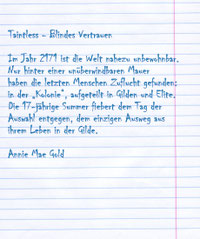 Taintless - Blindes Vertrauen
Im Jahr 2171 ist die Welt nahezu unbewohnbar.
Nur hinter einer unüberwindbaren Mauer
haben die letzten Menschen Zuflucht gefunden:
in der „Kolonie", aufgeteilt in Gilden und Elite.
Die 17-jährige Summer fiebert dem Tag der
Auswahl entgegen, dem einzigen Ausweg aus
ihrem Leben in der Gilde.
Annie Mae Gold